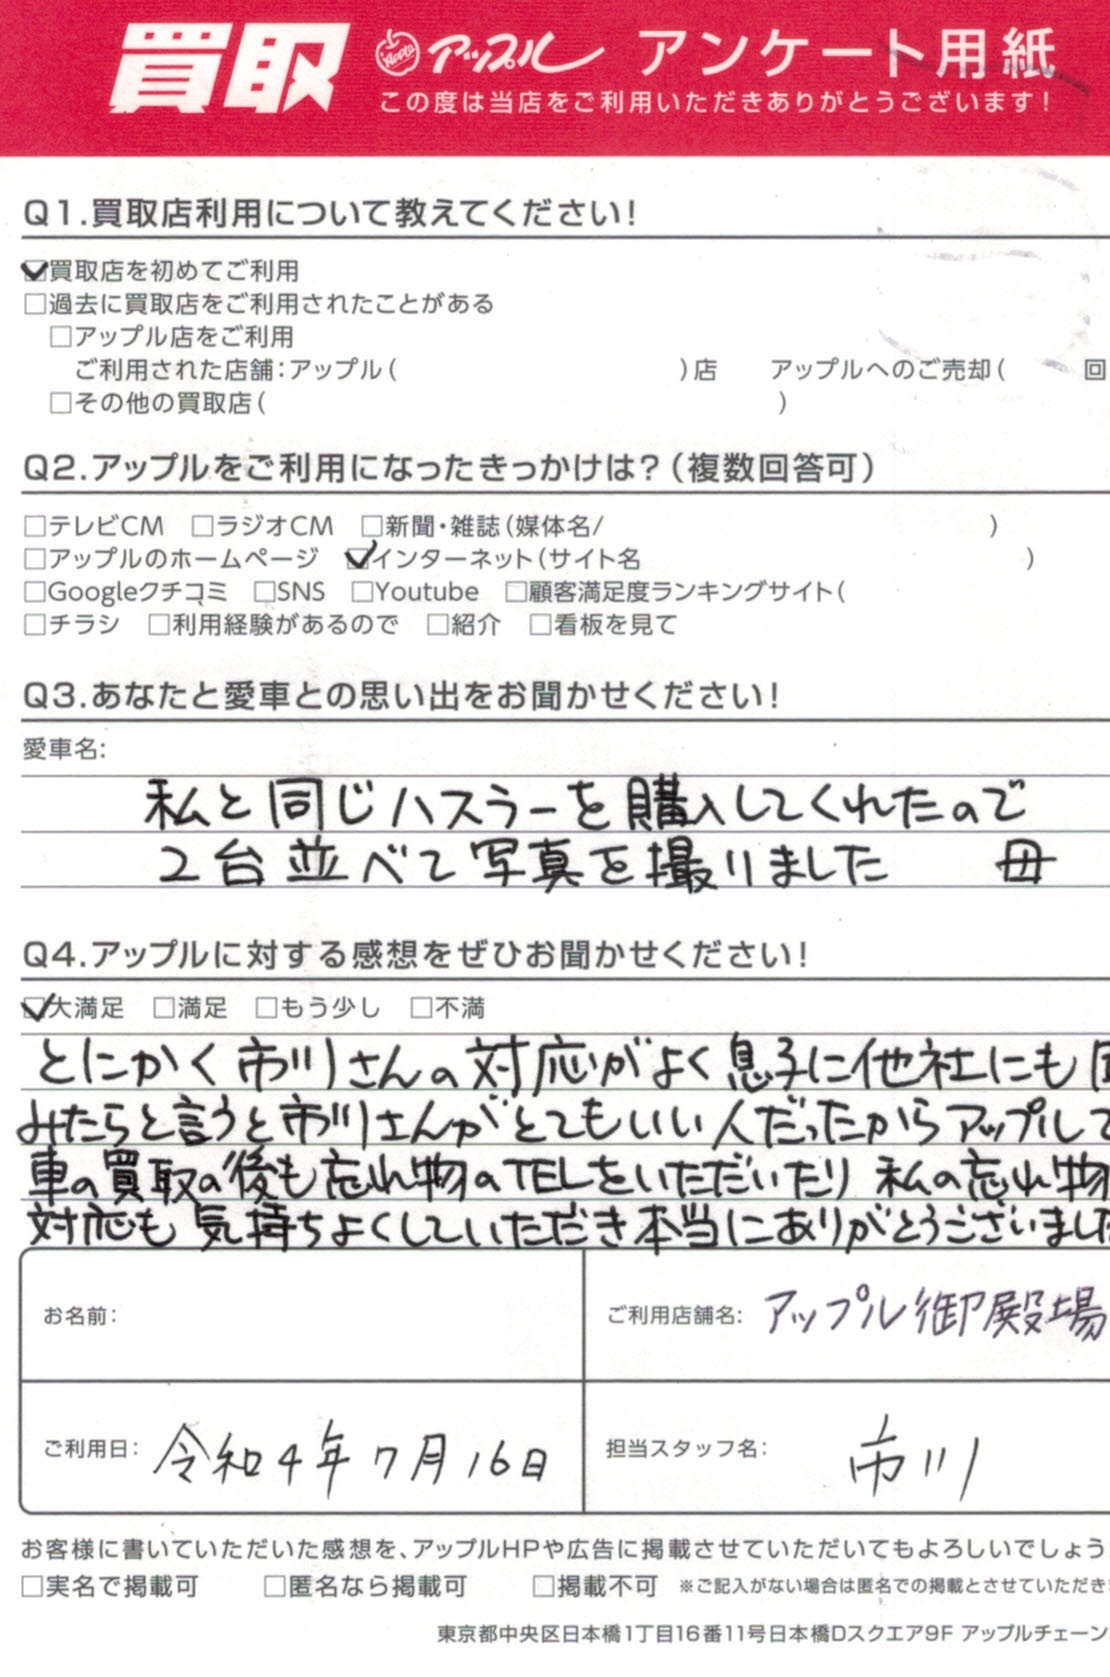 買取 Apple アップル アンケート用紙
この度は当店をご利用いただきありがとうございます!
Q1.買取店利用について教えてください!
☑買取店を初めてご利用
□過去に買取店をご利用されたことがある
□アップル店をご利用
ご利用された店舗:アップル( )店 アップルへのご売却( 回
□その他の買取店( )
Q2.アップルをご利用になったきっかけは?(複数回答可)
□テレビCM □ラジオCM □新聞・雑誌(媒体名/ )
□アップルのホームページ ☑インターネット(サイト名 )
□Googleクチコミ □SNS □Youtube □顧客満足度ランキングサイト(
□チラシ □利用経験があるので □紹介 □看板を見て
Q3.あなたと愛車との思い出をお聞かせください!
愛車名:
私と同じハスラーを購入してくれたので
2台並べて写真を撮りました 母
Q4.アップルに対する感想をぜひお聞かせください!
☑大満足 □満足 □もう少し □不満
とにかく市川さんの対応がよく息子に他社にも
みたらと言うと市川さんがとてもいい人だったからアップルで
車の買取の後も忘れ物のTELをいただいたり 私の忘れ物
対応も気持ちよくしていただき本当にありがとうございました
お名前: ご利用店舗名: アップル御殿場
ご利用日: 令和4年7月16日 担当スタッフ名: 市川
お客様に書いていただいた感想を、アップルHPや広告に掲載させていただいてもよろしいでしょう
□実名で掲載可 □匿名なら掲載可 □掲載不可 ※ご記入がない場合は匿名での掲載とさせていただき
東京都中央区日本橋1丁目16番11号日本橋Dスクエア9F アップルチェーン